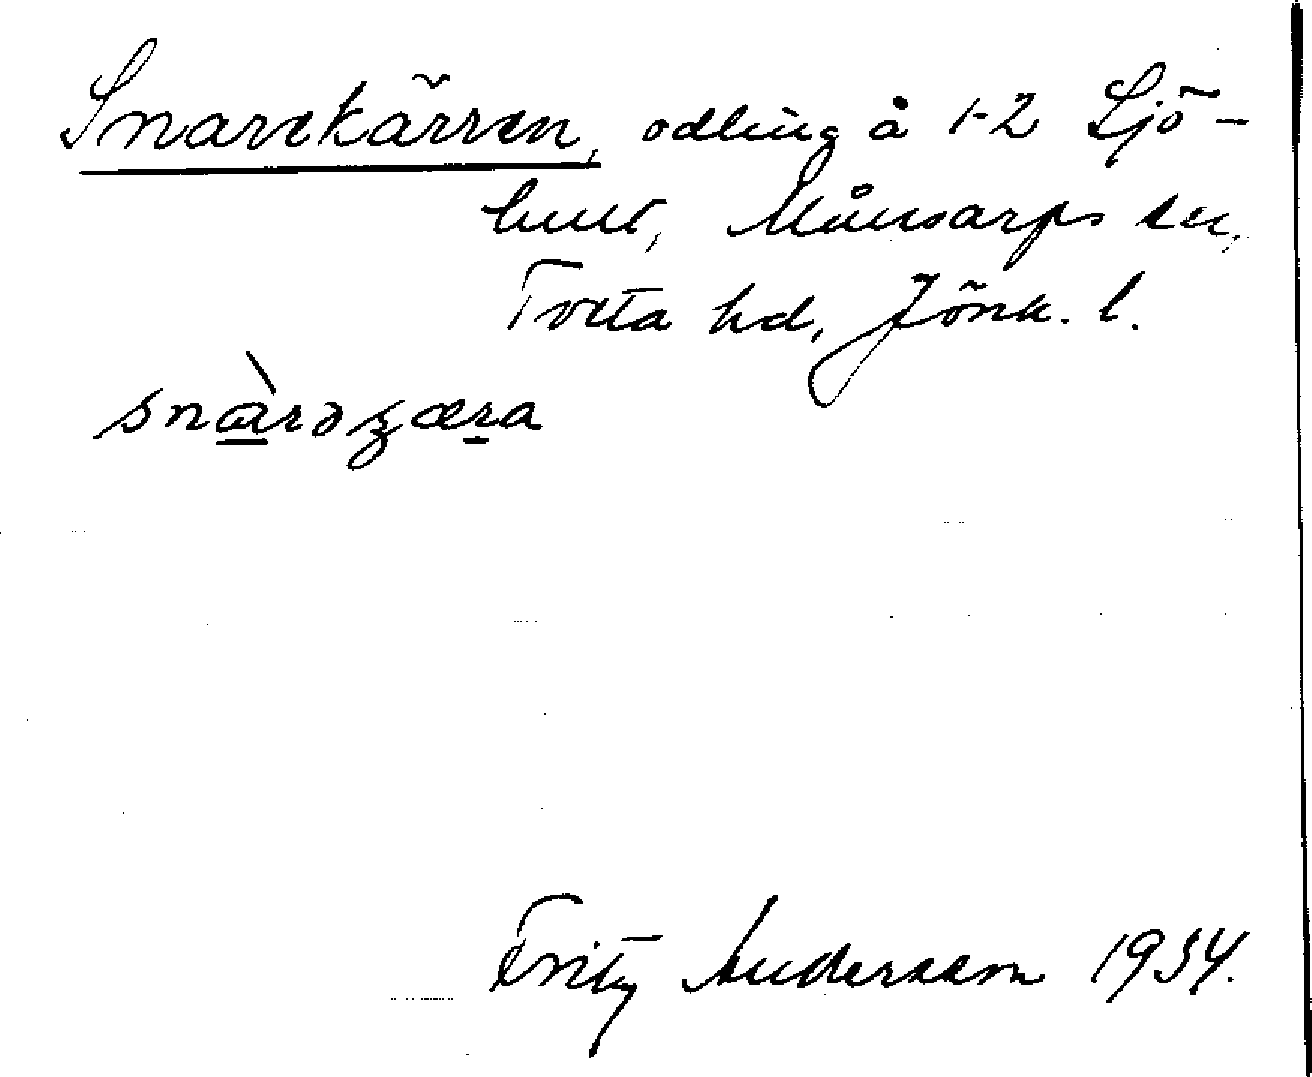 Snarekärren, odling å 1-2 Sjö-
hult, Månsarps sn,
Tveta hd, Jönk. l.
Fritz Andersson 1934.